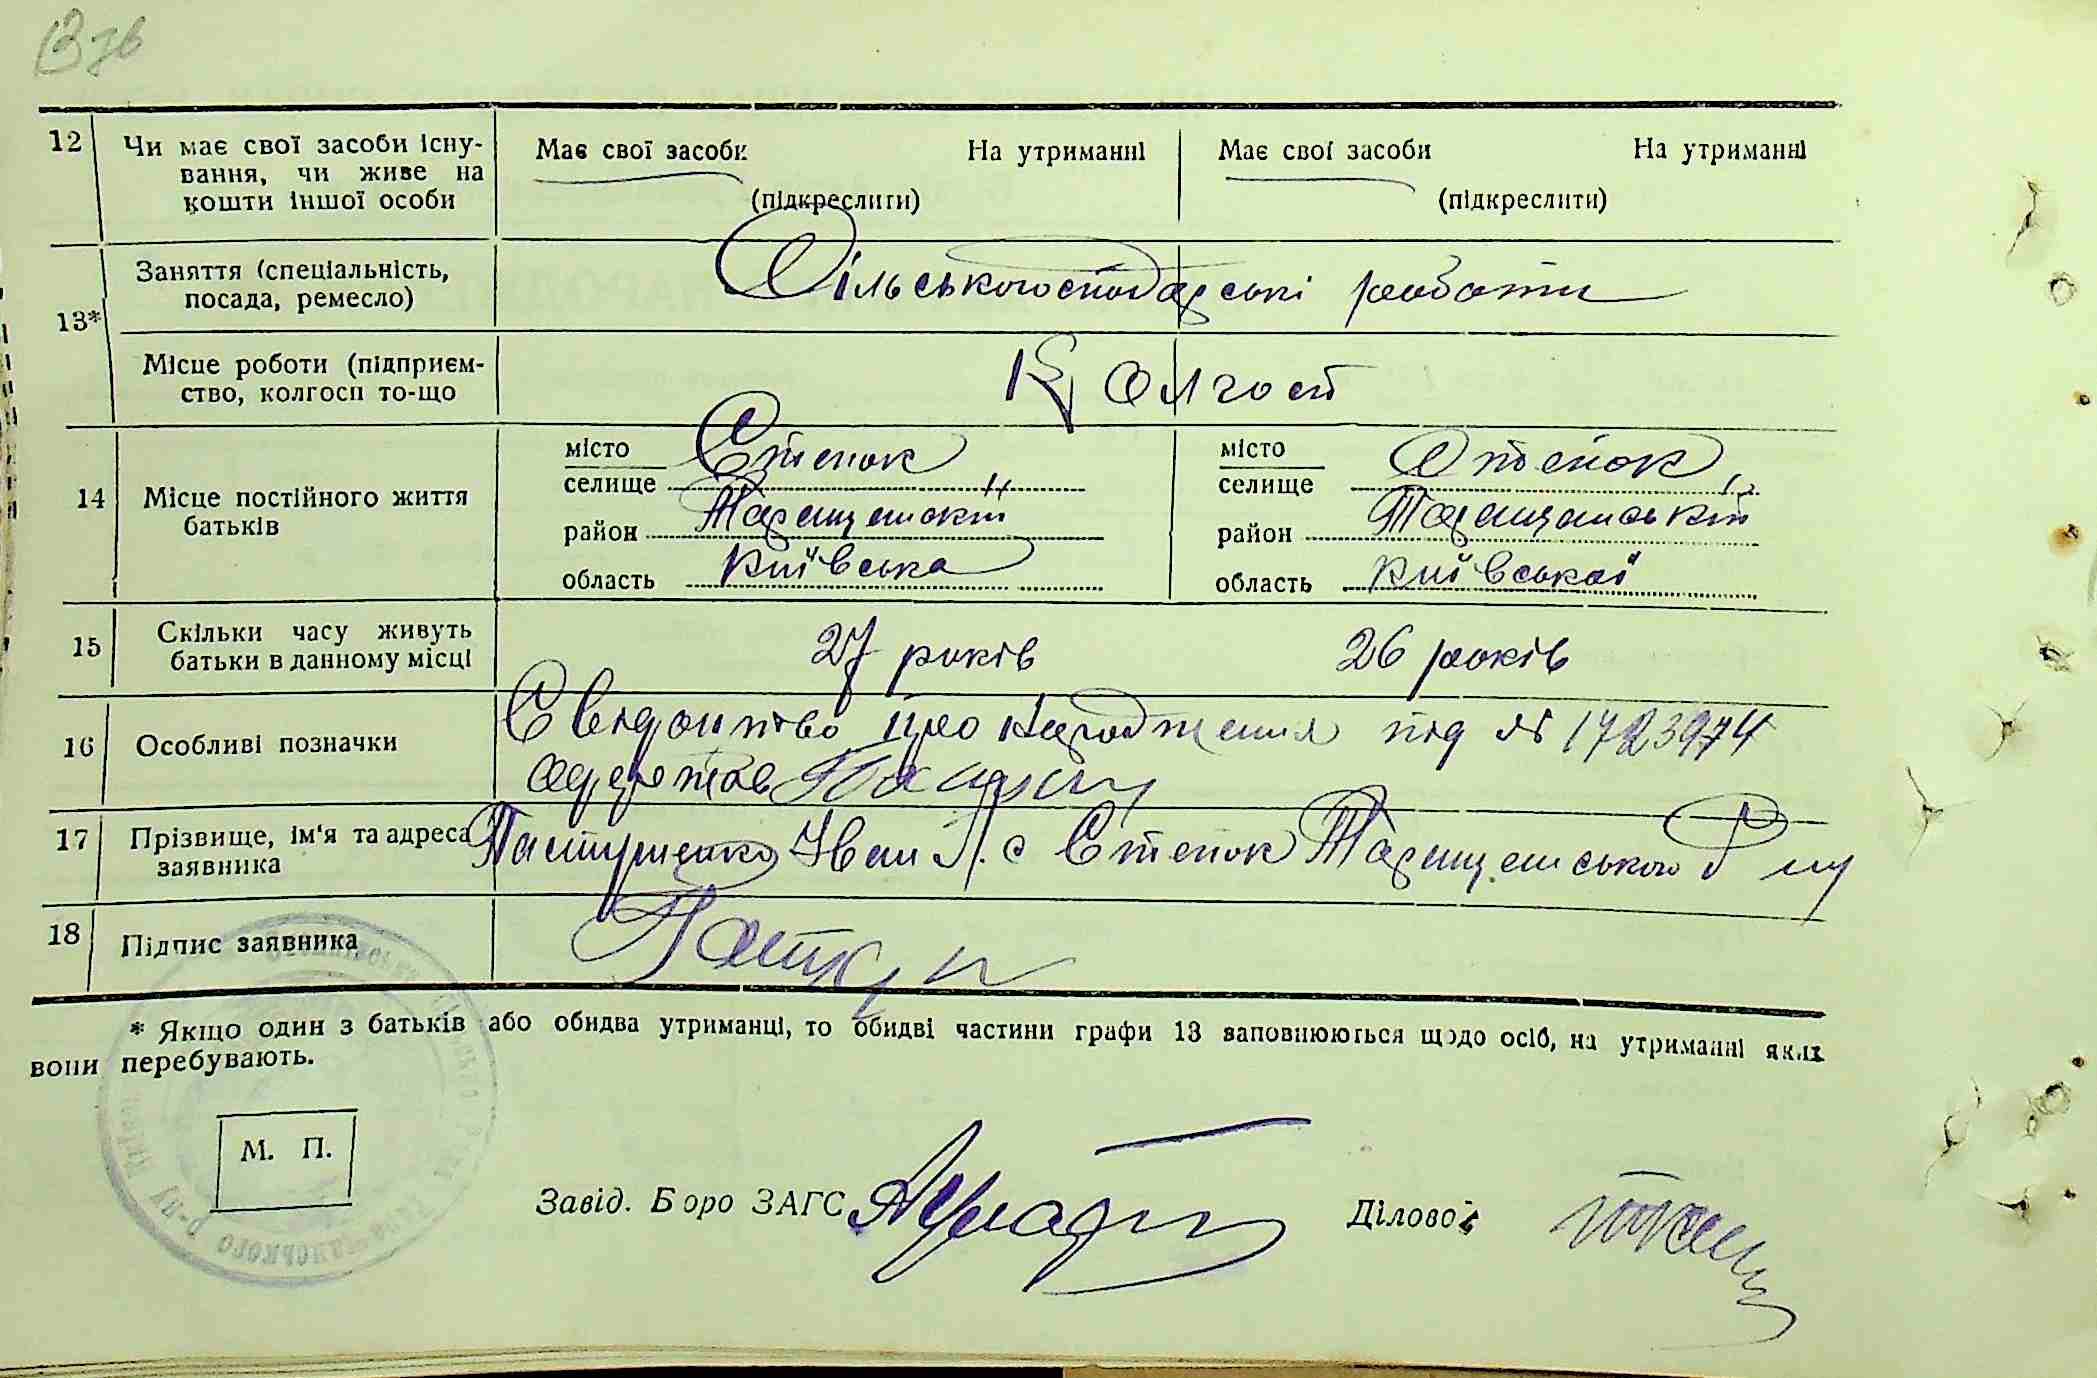 3 зв
12 Чи має свої засоби існу-
вання, чи живе на
кошти іншої особи
Має свої засоби На утриманні
(підкреслити)
Має свої засоби На утриманні
(підкреслити)
13* Заняття (спеціальність,
посада, ремесло)
Сільськогосподарські роботи
Місце роботи (підприєм-
ство, колгосп то-що
Колгосп
14 Місце постійного життя
батьків
місто
селище Степок
район Таращанський
область Київська
місто
селище Степок
район Таращанський
область Київської
15 Скільки часу живуть
батьки в данному місці
27 років 26 років
16 Особливі позначки
Свідоцтво про народження під № 1723974
одержав
17 Прізвище, ім'я та адреса
заявника
Пастушенко Іван с Степок Таращанського Р ну
18 Підпис заявника
* Якщо один з батьків або обидва утриманці, то обидві частини графи 13 заповнюються щодо осіб, на утриманні яких
вони перебувають.
М. П.
Завід. Бюро ЗАГС Діловод